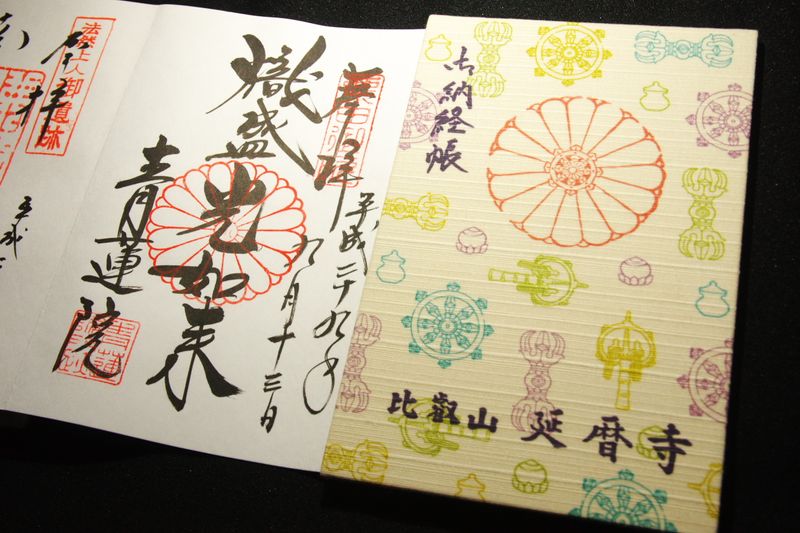 御納経帳
比叡山 延暦寺
奉拝
平成二十九年
九月十三日
熾盛光如来
青蓮院
法然上人御遺跡
奉拝
平成